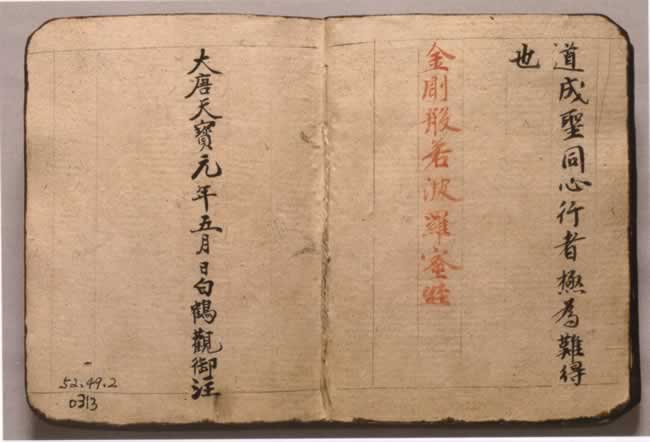 道成聖同心行者極為難得
也
金剛般若波羅蜜経
大唐天寶元年五月日白鶴觀御注
52.49.2
0313